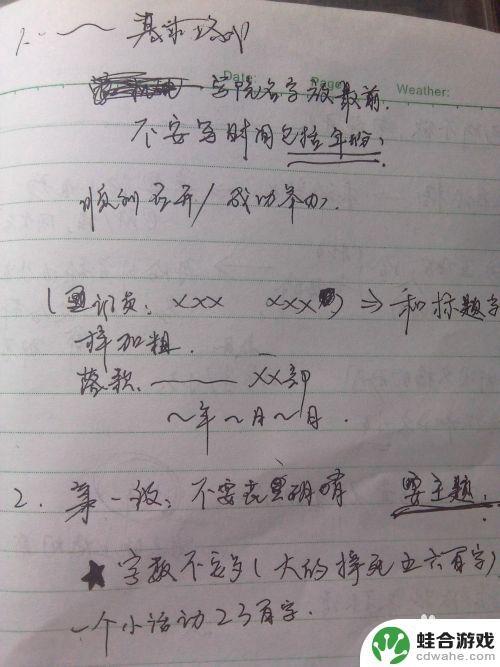 1. 基本格式
Date: Page: Weather:
学院名字放最前.
不要写时间包括年份.
顺利召开/成功举办.
(通讯员: XXX XXX) ⇒ 和标题字
样加粗.
落款. —— XX部
～年～月～日.
2. 第一段: 不要 要主题.
★字数不要多(大的撑死五六百字)
一个小活动23百字.
蛙合游戏
cdwahe.com